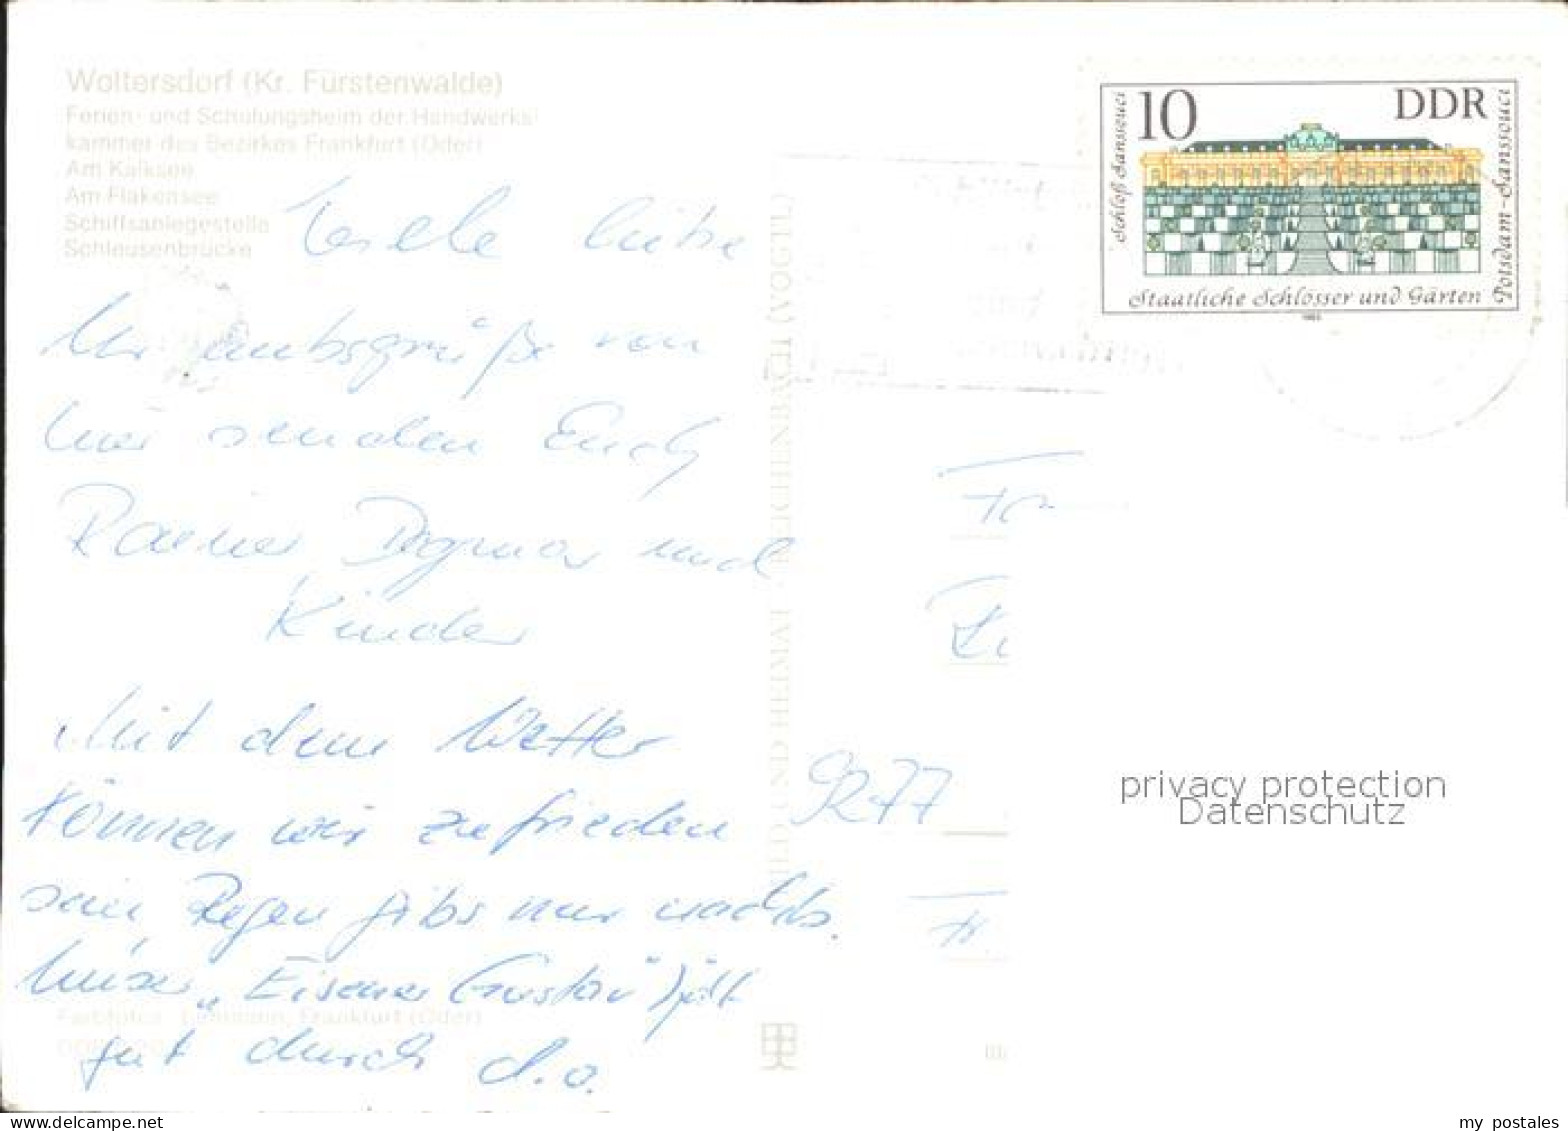 Woltersdorf (Kr. Fürstenwalde)
Ferien- und Schulungsheim der Handwerks-
kammer des Bezirkes Frankfurt (Oder)
Am Kalksee
Am Flakensee
Schiffsanlegestelle
Schleusenbrücke
Viele liebe
Urlaubsgrüße von
hier senden Euch
Rainer Dagmar und
Kinder
Mit dem Wetter
können wir zufrieden
sein Regen gibs nur nachts.
Unser „Eiserner Gustav" hält
gut durch
Farbfotos: Lehmann, Frankfurt (Oder)
BILD UND HEIMAT · REICHENBACH (VOGTL)
10 DDR
Schloß Sanssouci
Potsdam-Sanssouci
Staatliche Schlösser und Gärten
1983
9277
privacy protection
Datenschutz
my postales